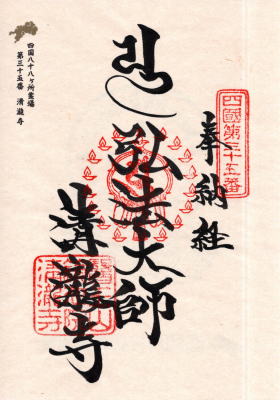 四国八十八ヶ所霊場
第三十五番 清瀧寺
四國第三十五番
奉納経
弘法大師
清瀧寺
清瀧寺